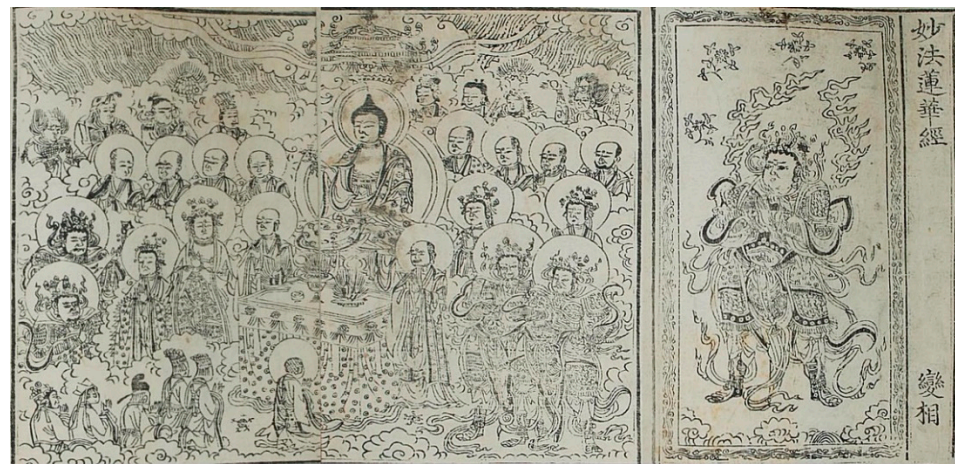 妙法蓮華經
變相